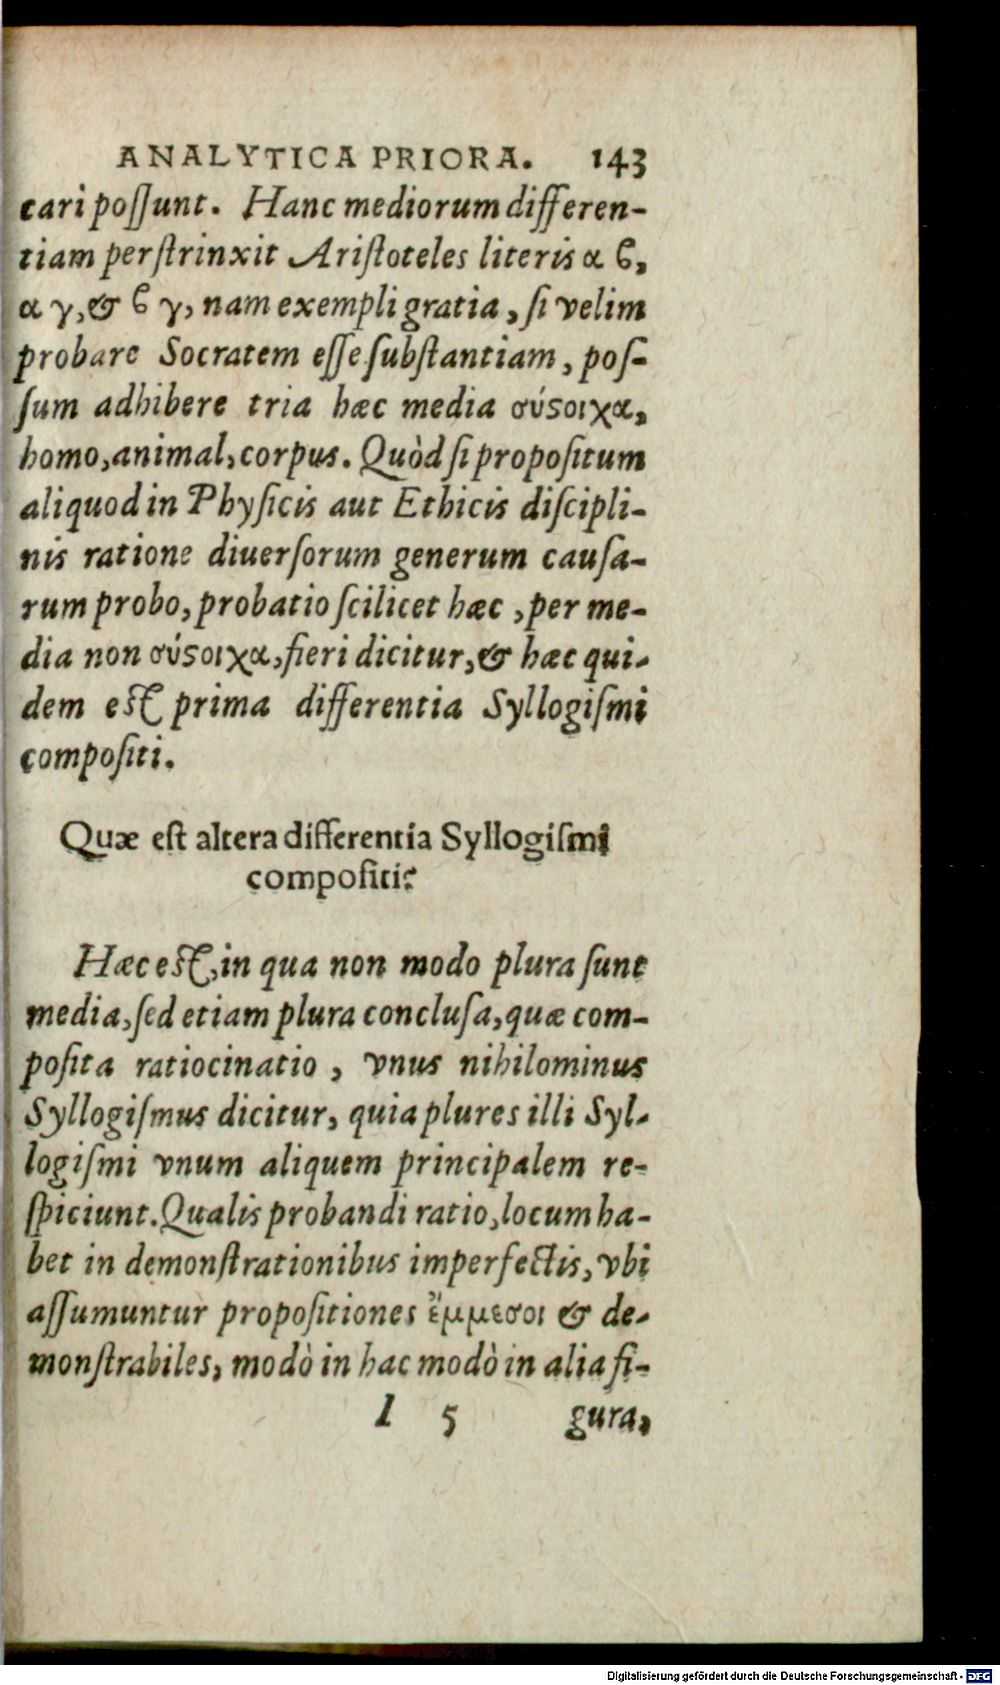 ANALYTICA PRIORA. 143
cari poſſunt. Hanc mediorum differen-
tiam perſtrinxit Ariſtoteles literis α ϐ,
α γ, & ϐ γ, nam exempli gratia, ſi velim
probare Socratem eſſe ſubſtantiam, poſ-
ſum adhibere tria hæc media σύϛοιχα,
homo, animal, corpus. Quòd ſi propoſitum
aliquod in Phyſicis aut Ethicis diſcipli-
nis ratione diuerſorum generum cauſa-
rum probo, probatio ſcilicet hæc, per me-
dia non σύϛοιχα, fieri dicitur, & hæc qui-
dem eſt prima differentia Syllogiſmi
compoſiti.
Quæ eſt altera differentia Syllogiſmi
compoſiti?
Hæc eſt, in qua non modo plura ſunt
media, ſed etiam plura concluſa, quæ com-
poſita ratiocinatio, vnus nihilominus
Syllogiſmus dicitur, quia plures illi Syl-
logiſmi vnum aliquem principalem re-
ſpiciunt. Qualis probandi ratio, locum ha-
bet in demonſtrationibus imperfectis, vbi
aſſumuntur propoſitiones ἔμμεσοι & de-
monſtrabiles, modò in hac modò in alia fi-
I 5 gura,
Digitalisierung gefördert durch die Deutsche Forschungsgemeinschaft - DFG